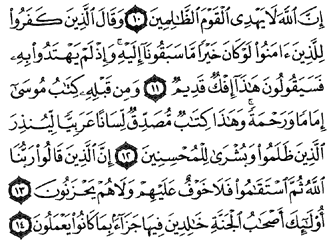 إِنَّ ٱللَّهَ لَا يَهْدِى ٱلْقَوْمَ ٱلظَّٰلِمِينَ ١٠ وَقَالَ ٱلَّذِينَ كَفَرُوا۟
لِلَّذِينَ ءَامَنُوا۟ لَوْ كَانَ خَيْرًا مَّا سَبَقُونَآ إِلَيْهِ ۚ وَإِذْ لَمْ يَهْتَدُوا۟ بِهِۦ
فَسَيَقُولُونَ هَٰذَآ إِفْكٌ قَدِيمٌ ١١ وَمِن قَبْلِهِۦ كِتَٰبُ مُوسَىٰٓ
إِمَامًا وَرَحْمَةً ۚ وَهَٰذَا كِتَٰبٌ مُّصَدِّقٌ لِّسَانًا عَرَبِيًّا لِّيُنذِرَ
ٱلَّذِينَ ظَلَمُوا۟ وَبُشْرَىٰ لِلْمُحْسِنِينَ ١٢ إِنَّ ٱلَّذِينَ قَالُوا۟ رَبُّنَا
ٱللَّهُ ثُمَّ ٱسْتَقَٰمُوا۟ فَلَا خَوْفٌ عَلَيْهِمْ وَلَا هُمْ يَحْزَنُونَ ١٣
أُو۟لَٰٓئِكَ أَصْحَٰبُ ٱلْجَنَّةِ خَٰلِدِينَ فِيهَا جَزَآءًۢ بِمَا كَانُوا۟ يَعْمَلُونَ ١٤